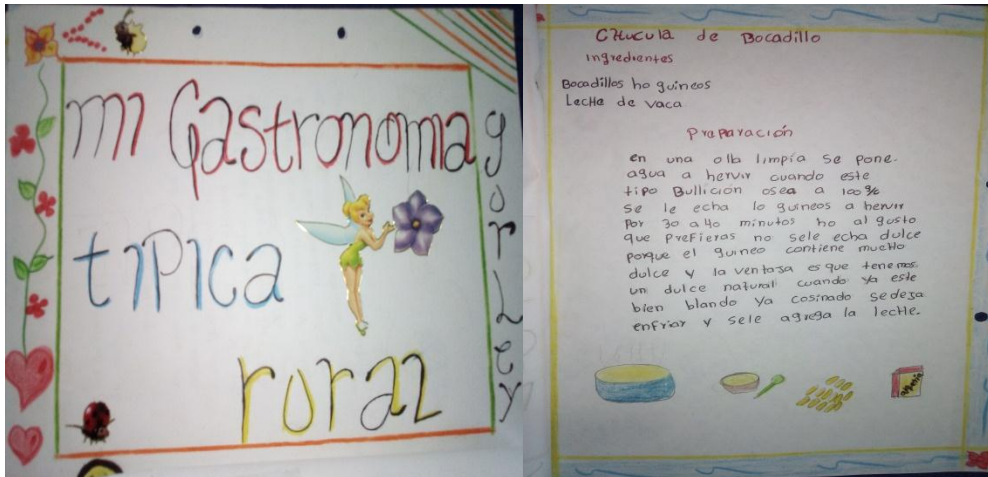 mi Gastronomia
tipica
rural
yorley
CHucula de Bocadillo
ingredientes
Bocadillos ho guineos
LecHe de vaca
PraParación
en una olla limpía se pone.
agua a hervir cuando este
tipo Bullición osea a 100%
se le echa lo guineos a hervir
Por 30 a 40 minutos ho al gusto
que Prefieras no sele echa dulce
porque el guineo contiene mucHo
dulce y la ventaja es que tenemos.
un dulce natural cuando ya este
bien blando Ya cosinado sedeja
enfriar y sele agrega la lecHe.